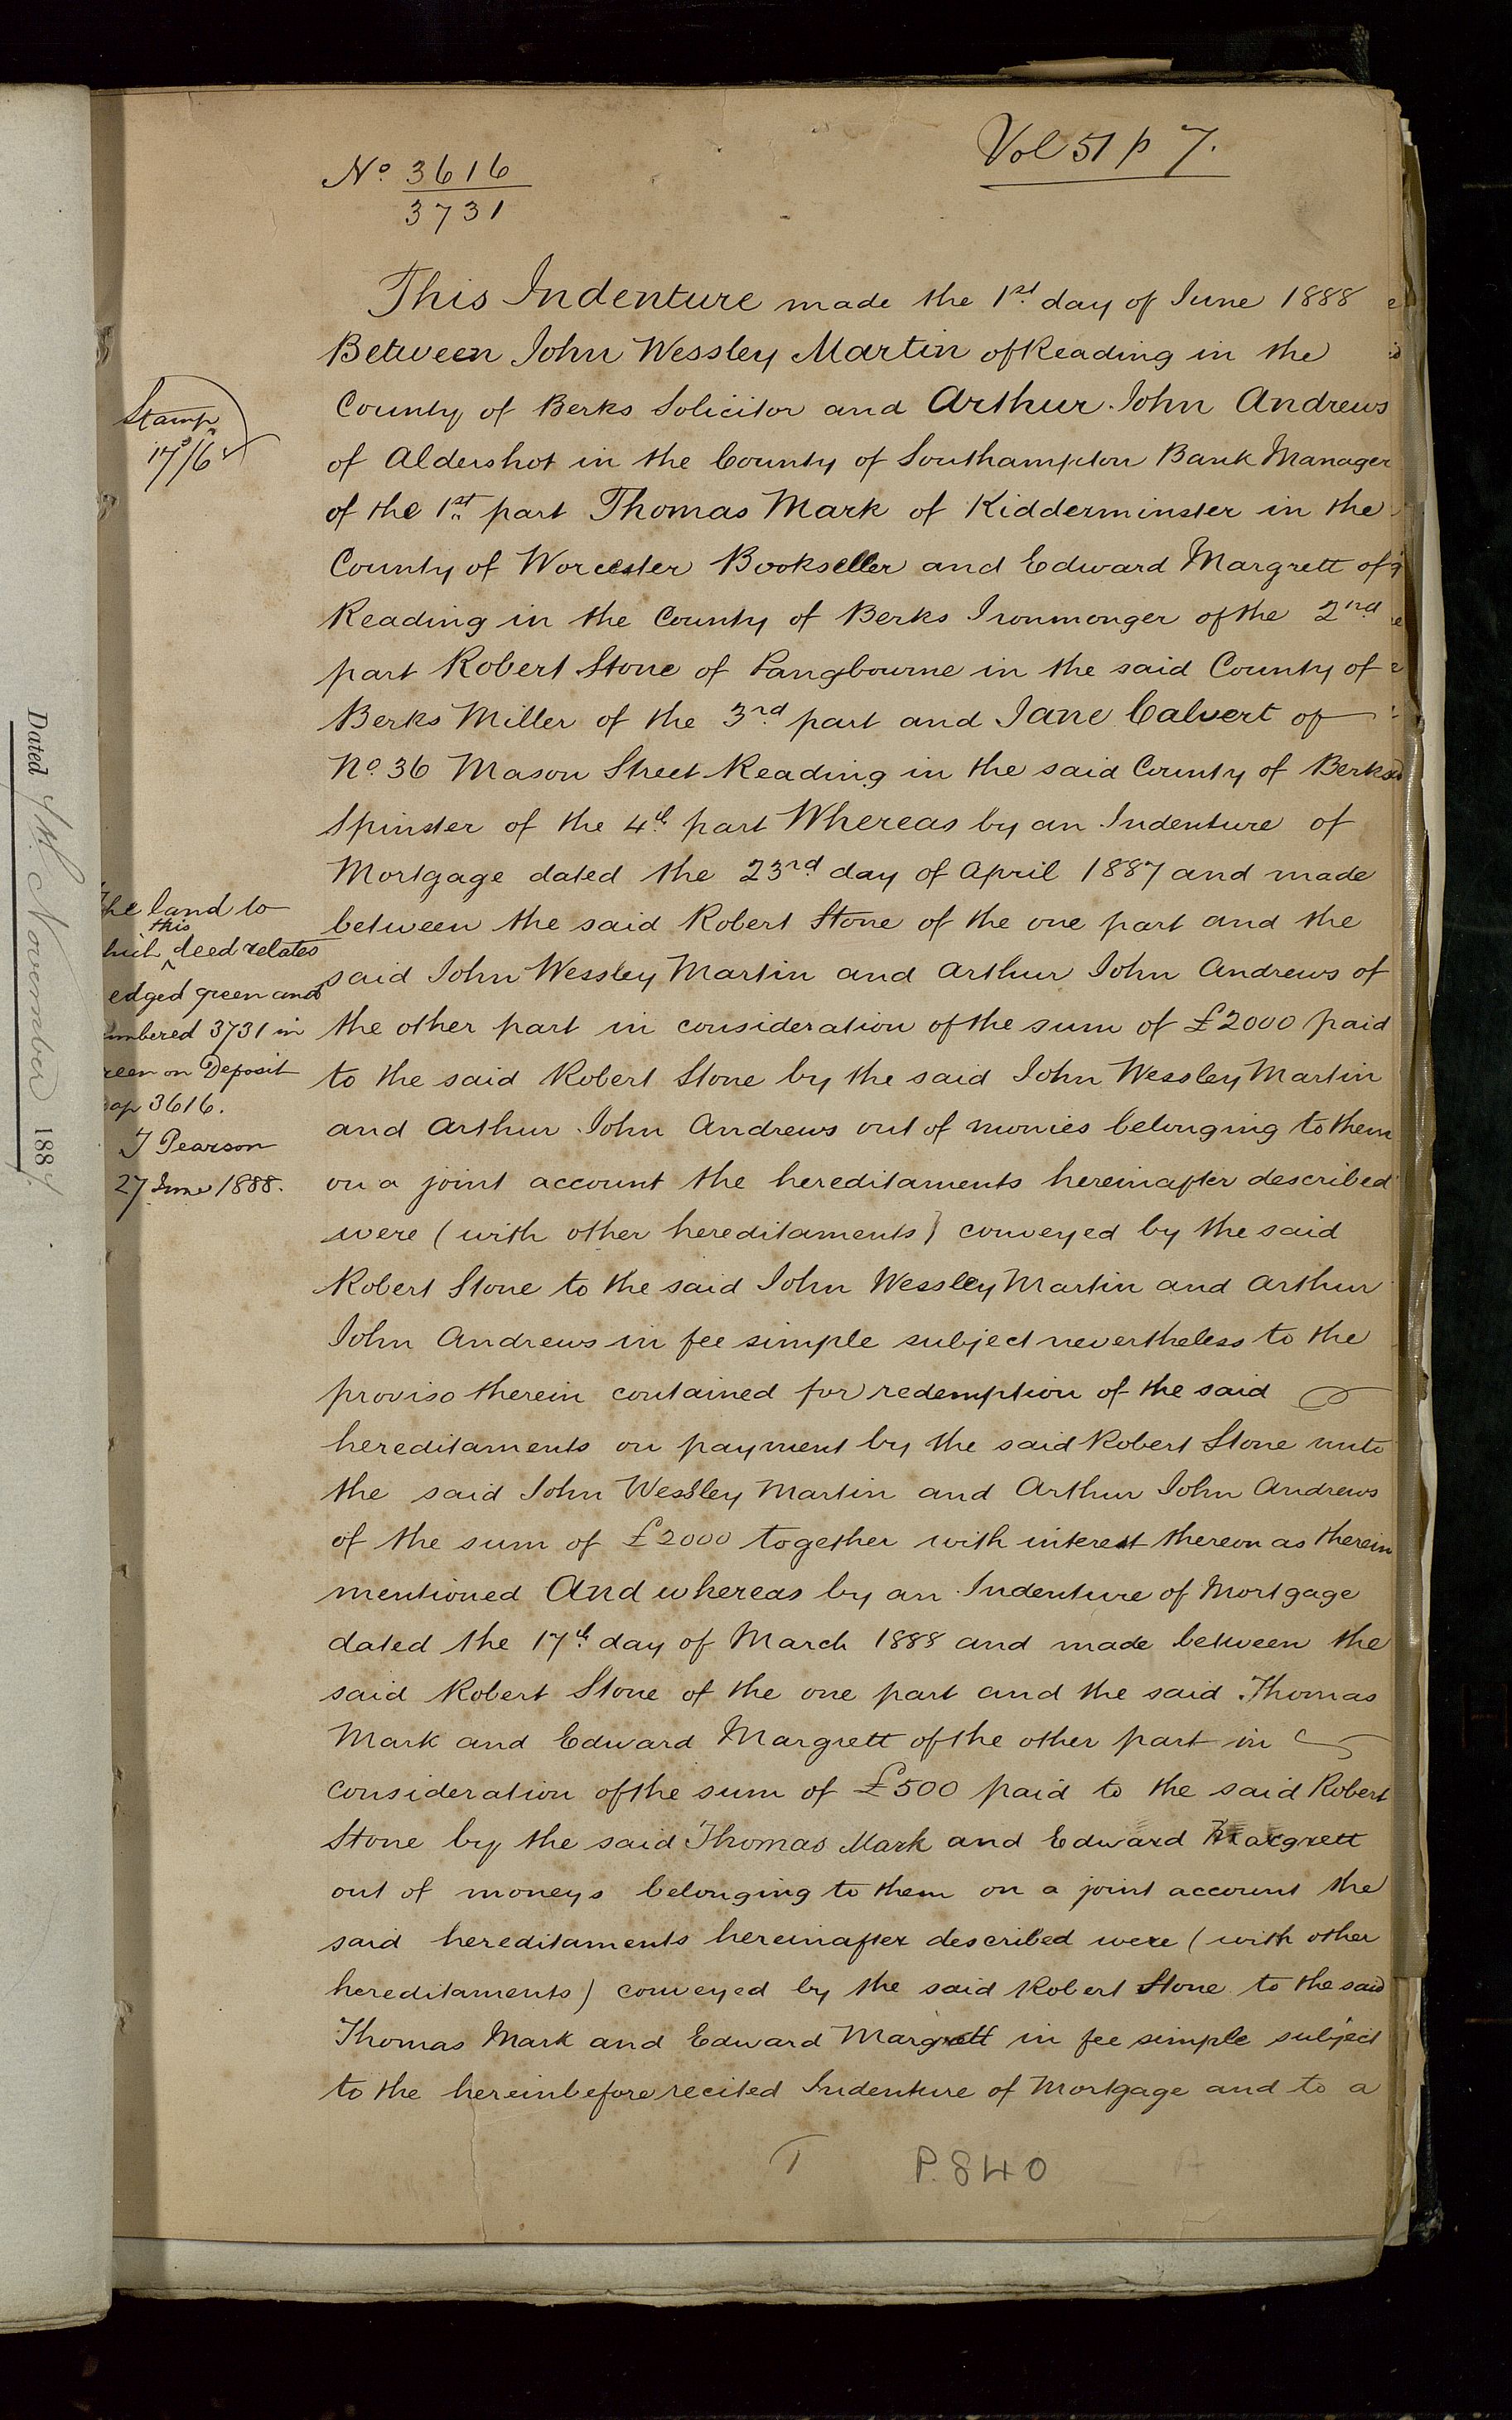 Vol 51 p 7.
No 3616
3731
This Indenture made the 1st day of June 1888
Between John Wessley Martin of Reading in the
County of Berks Solicitor and Arthur John Andrews
of Aldershot in the County of Southampton Bank Manager
of the 1st part Thomas Mark of Kidderminster in the
County of Worcester Bookseller and Edward Margrett of
Reading in the County of Berks Ironmonger of the 2nd
part Robert Stone of Pangbourne in the said County of
Berks Miller of the 3rd part and Jane Calvert of
No. 36 Mason Street Reading in the said County of Berks
Spinster of the 4th part Whereas by an Indenture of
Mortgage dated the 23rd day of April 1887 and made
between the said Robert Stone of the one part and the
said John Wessley Martin and Arthur John Andrews of
the other part in consideration of the sum of £2000 paid
to the said Robert Stone by the said John Wessley Martin
and Arthur John Andrews out of monies belonging to them
on a joint account the hereditaments hereinafter described
were (with other hereditaments) conveyed by the said
Robert Stone to the said John Wessley Martin and Arthur
John Andrews in fee simple subject nevertheless to the
proviso therein contained for redemption of the said
hereditaments on payment by the said Robert Stone unto
the said John Wessley Martin and Arthur John Andrews
of the sum of £2000 together with interest thereon as therein
mentioned And whereas by an Indenture of Mortgage
dated the 17th day of March 1888 and made between the
said Robert Stone of the one part and the said Thomas
Mark and Edward Margrett of the other part in
consideration of the sum of £500 paid to the said Robert
Stone by the said Thomas Mark and Edward Margrett
out of moneys belonging to them on a joint account the
said hereditaments hereinafter described were (with other
hereditaments) conveyed by the said Robert Stone to the said
Thomas Mark and Edward Margrett in fee simple subject
to the hereinbefore recited Indenture of Mortgage and to a
T P.840
Stamp
17/6
The land to
this
hich deed relates
edged green and
umbered 3731 in
reen on Deposit
ap 3616.
J Pearson
27 June 1888.
Dated November 188